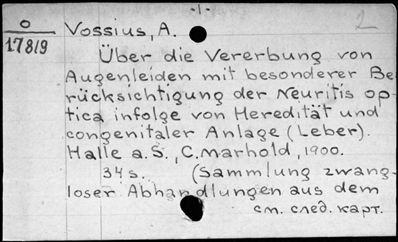 -1-
2
O
17819
Vossius, A.
Über die Vererbung von
Augenleiden mit besonderer Be
rücksichtigung der Neuritis op-
tica infolge von Heredität und
congenitaler Anlage (Leber).
Halle a.S., C. Marhold, 1900.
34 s. (Sammlung zwang-
loser Abhandlungen aus dem
см. след. карт.